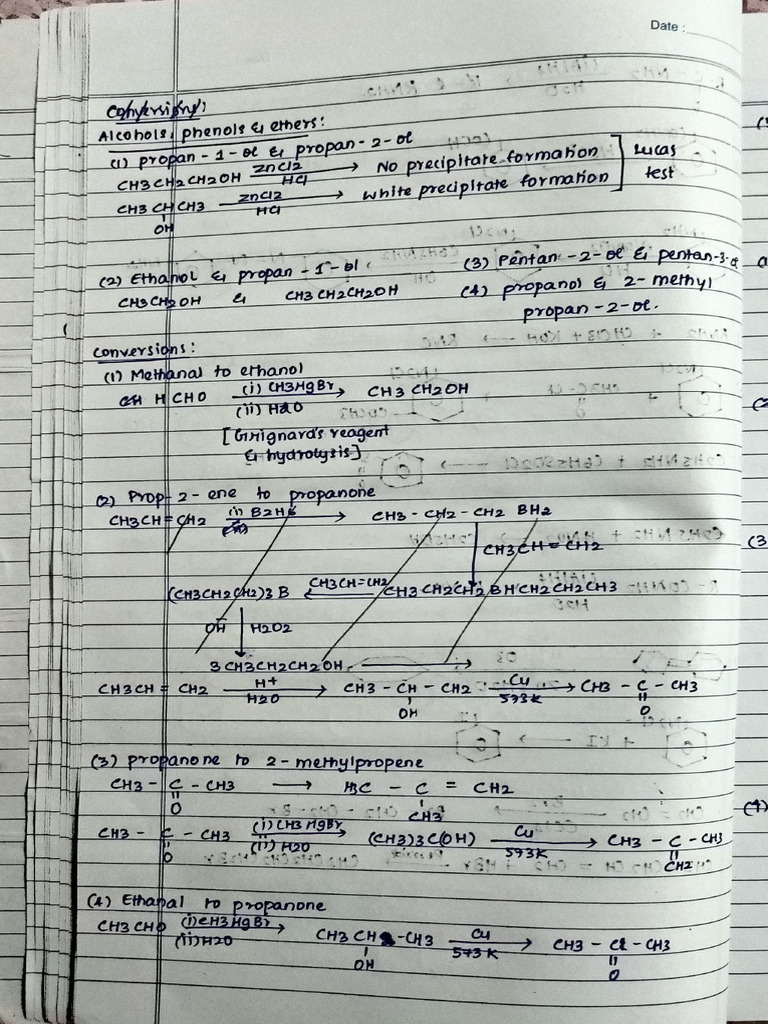 Date :
Conversions:
Alcohols, phenols & ethers:
(1) propan-1-ol & propan-2-ol
CH3CH2CH2OH ZnCl2 HCl → No precipitate formation
CH3CHCH3 ZnCl2 HCl → White precipitate formation
OH
Lucas test
(2) Ethanol & propan-1-ol
CH3CH2OH & CH3CH2CH2OH
(3) Pentan-2-ol & pentan-3-ol
(4) propanol & 2-methyl
propan-2-ol.
conversions:
(1) Methanal to ethanol
HCHO (i) CH3MgBr (ii) H2O → CH3CH2OH
[Grignard's reagent
& hydrolysis]
(2) Prop-2-ene to propanone
CH3CH=CH2 (i) B2H6 → CH3-CH2-CH2 BH2
↓ CH3CH=CH2
(CH3CH2CH2)3B ← CH3CH=CH2 CH3CH2CH2BHCH2CH2CH3
OH ↓ H2O2
3CH3CH2CH2OH →
CH3CH=CH2 H+ H2O → CH3-CH-CH2 Cu 593K → CH3-C-CH3
OH O
(3) propanone to 2-methylpropene
CH3-C-CH3 → H3C-C=CH2
O CH3
CH3-C-CH3 (i) CH3MgBr (ii) H2O → (CH3)3C(OH) Cu 593K → CH3-C-CH3
O CH2
(4) Ethanal to propanone
CH3CHO (i) CH3MgBr (ii) H2O → CH3CH-CH3 Cu 573K → CH3-C-CH3
OH O